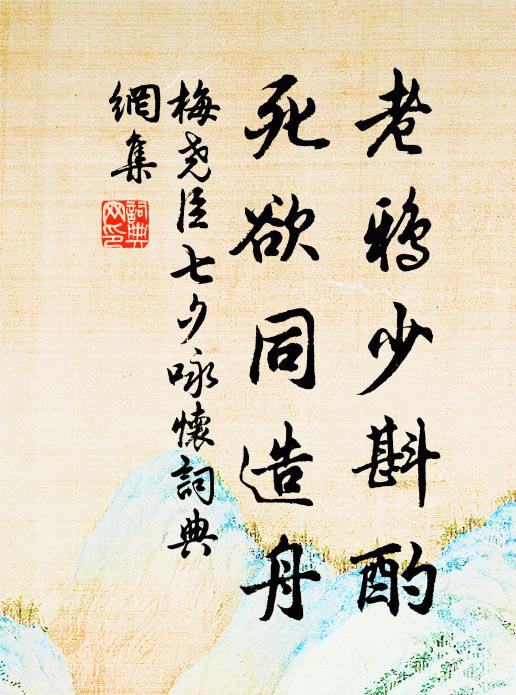 老鴉少斟酌
死欲同造舟
梅尧臣七夕咏懷詞典
網集
詞典
网印